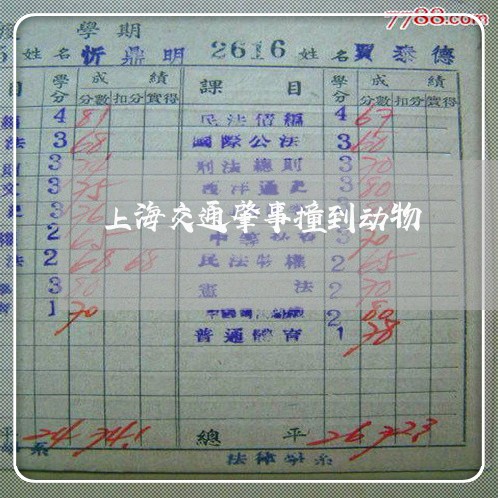 7788.com
學期
姓名 忻鼎明 2616 姓名 賈泰德
目 學分 成績 課目 學分 成績
分數 扣分 實得 分數 扣分 實得
4 81 民法債編 4 67
法 3 68 國際公法 3 60
3 刑法總則 3 70
3 75 西洋通史 3 80
3 76
上海交通肇事撞到动物
2 65 3 70
法 2 68 68 民法物權 2 65
3 80 憲法 2 70
1 70 2 80
普通體育 1 78
平 24 74.1 總平 26 72.3
系 法律學系